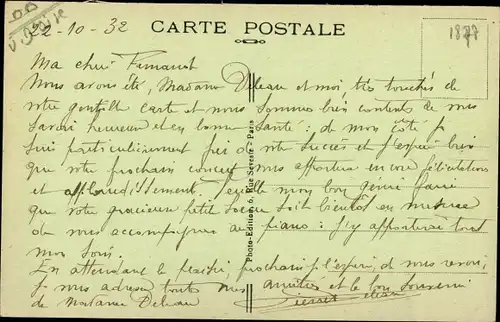 22-10-32
CARTE POSTALE
1877
Ma chère
Nous avons été, Madame Deleau et moi, très touchés de
votre gentille carte et nous sommes bien contents de vous
savoir heureux et en bonne santé : de mon côté je
suis particulièrement fier de votre succès et j'espère bien
que votre prochain concert vous apportera encore félicitations
et applaudissements. mon bon génie faire
que votre gracieuse petite soeur soit bientôt en mesure
de vous accompagner au piano : j'y apporterai tout
mon soin.
En attendant le plaisir, prochain j'espère, de vous revoir,
je vous adresse toutes mes amitiés et le bon souvenir
de Madame Deleau
Pierre Deleau
Photo-Edition, 6, Rue Servesta - Paris